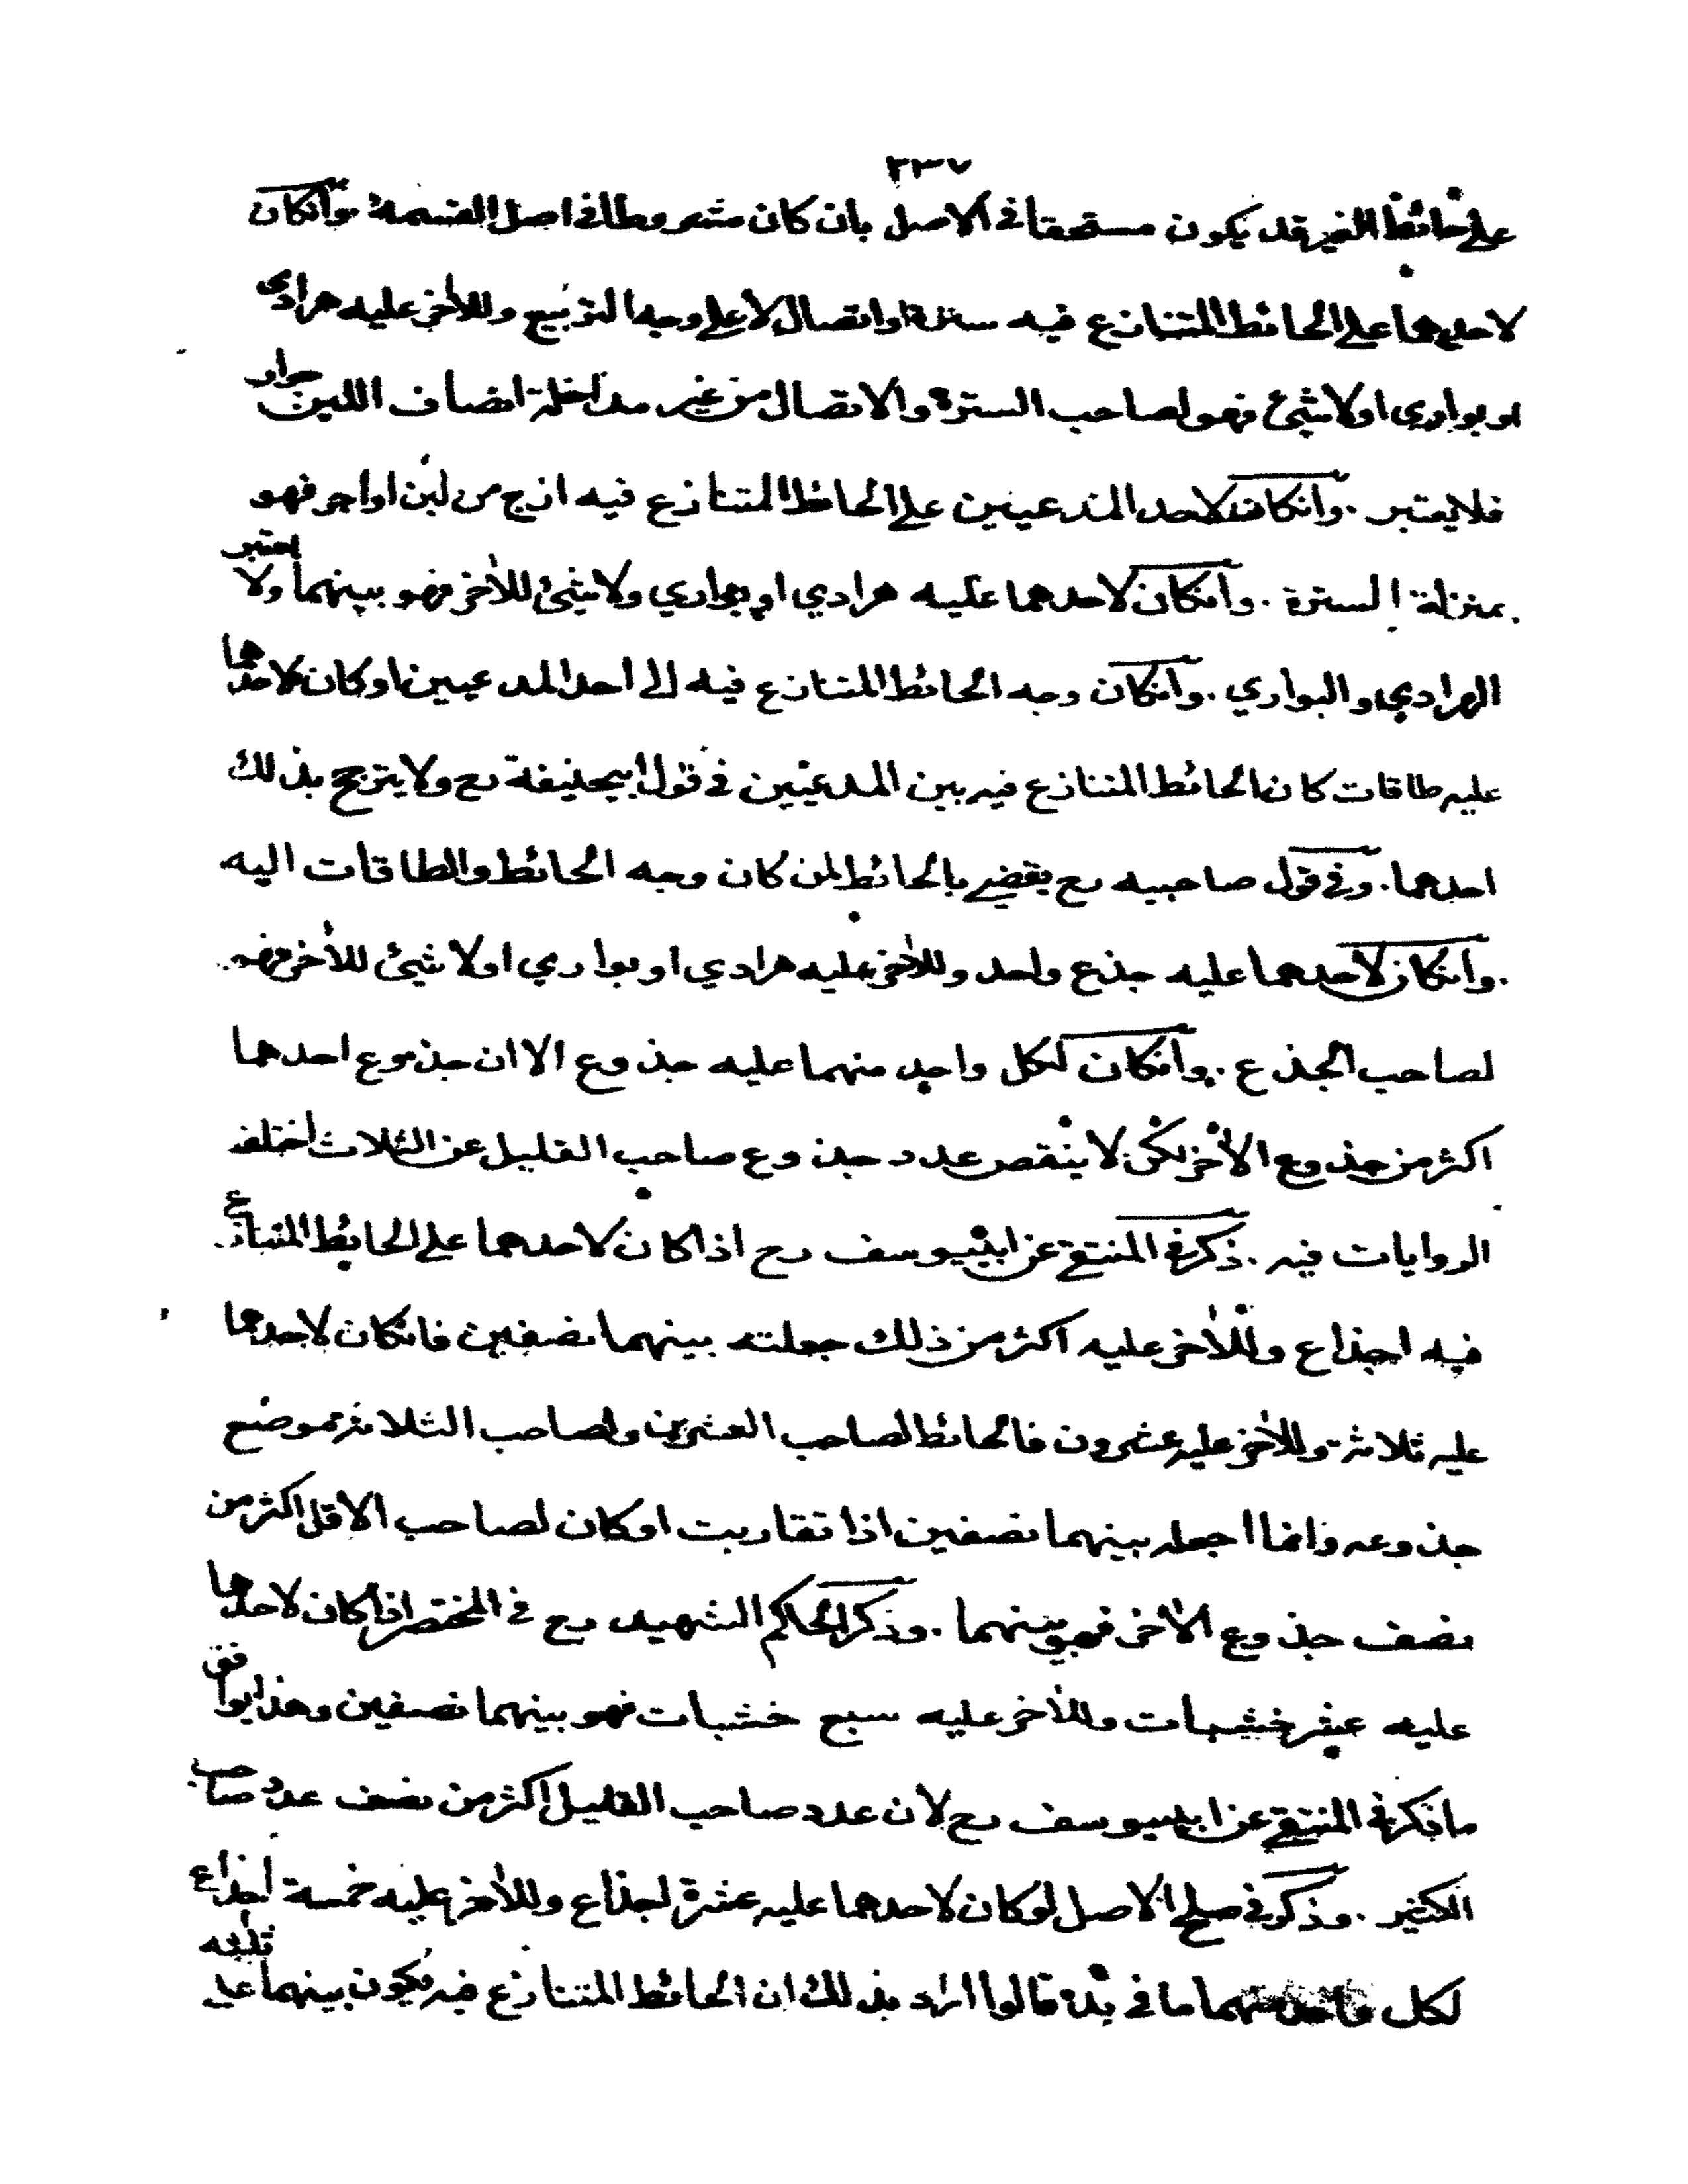 ٢٣٧
على حائط الغير قد يكون مستحقا في الاصل بان كان مشروطا في اصل القسمة وانكان
لاحدهما على الحائط المتنازع فيه سترة او اتصال لا على وجه التربيع وللأخر عليه هرادى
او بواري او لا شئ فهو لصاحب السترة والاتصال من غير مداخلة انصاف اللبن جوار
فلا يعتبر . وانكان لاحد المدعيين على الحائط المتنازع فيه ازج من لبن او اجر فهو
بمنزلة السترة . وانكان لاحدهما عليه هرادي او بواري ولا شئ للأخر فهو بينهما ولا يعتبر
الهرادي والبواري . وانكان وجه الحائط المتنازع فيه الى احد المدعيين او كان لاحدهما
عليه طاقات كان الحائط المتنازع فيه بين المدعيين في قول ابيحنيفة رح ولا يترجح بذلك
احدهما . وفي قول صاحبيه رح يقضى بالحائط لمن كان وجه الحائط والطاقات اليه
. وانكان لاحدهما عليه جذع واحد وللأخر عليه هرادي او بواري او لا شئ للأخر فهو
لصاحب الجذع . وانكان لكل واحد منهما عليه جذوع الا ان جذوع احدهما
اكثر من جذوع الأخر لكن لا ينقص عدد جذوع صاحب القليل عن الثلاث اختلف
الروايات فيه . ذكر في المنتقى عن ابييوسف رح اذا كان لاحدهما على الحائط المتنازع
فيه اجذاع وللأخر عليه اكثر من ذلك جعلته بينهما نصفين فانكان لاحدهما
عليه ثلاثة وللأخر عليه عشرون فالحائط لصاحب العشرين ولصاحب الثلاثة موضع
جذوعه وانما اجعله بينهما نصفين اذا تقاربت او كان لصاحب الاقل اكثر من
نصف جذوع الأخر فهو بينهما . وذكر الحاكم الشهيد رح في المختصر اذا كان لاحدهما
عليه عشر خشبات وللأخر عليه سبع خشبات فهو بينهما نصفين وهذا يوافق
ما ذكر في المنتقى عن ابييوسف رح لان عدد صاحب القليل اكثر من نصف عدد صاحب
الكثير . وذكر في صلح الاصل لو كان لاحدهما عليه عشرة اجذاع وللأخر عليه خمسة اجذاع
لكل واحد منهما ما في يده قالوا اراد بذلك ان الحائط المتنازع فيه يكون بينهما على ثلثه